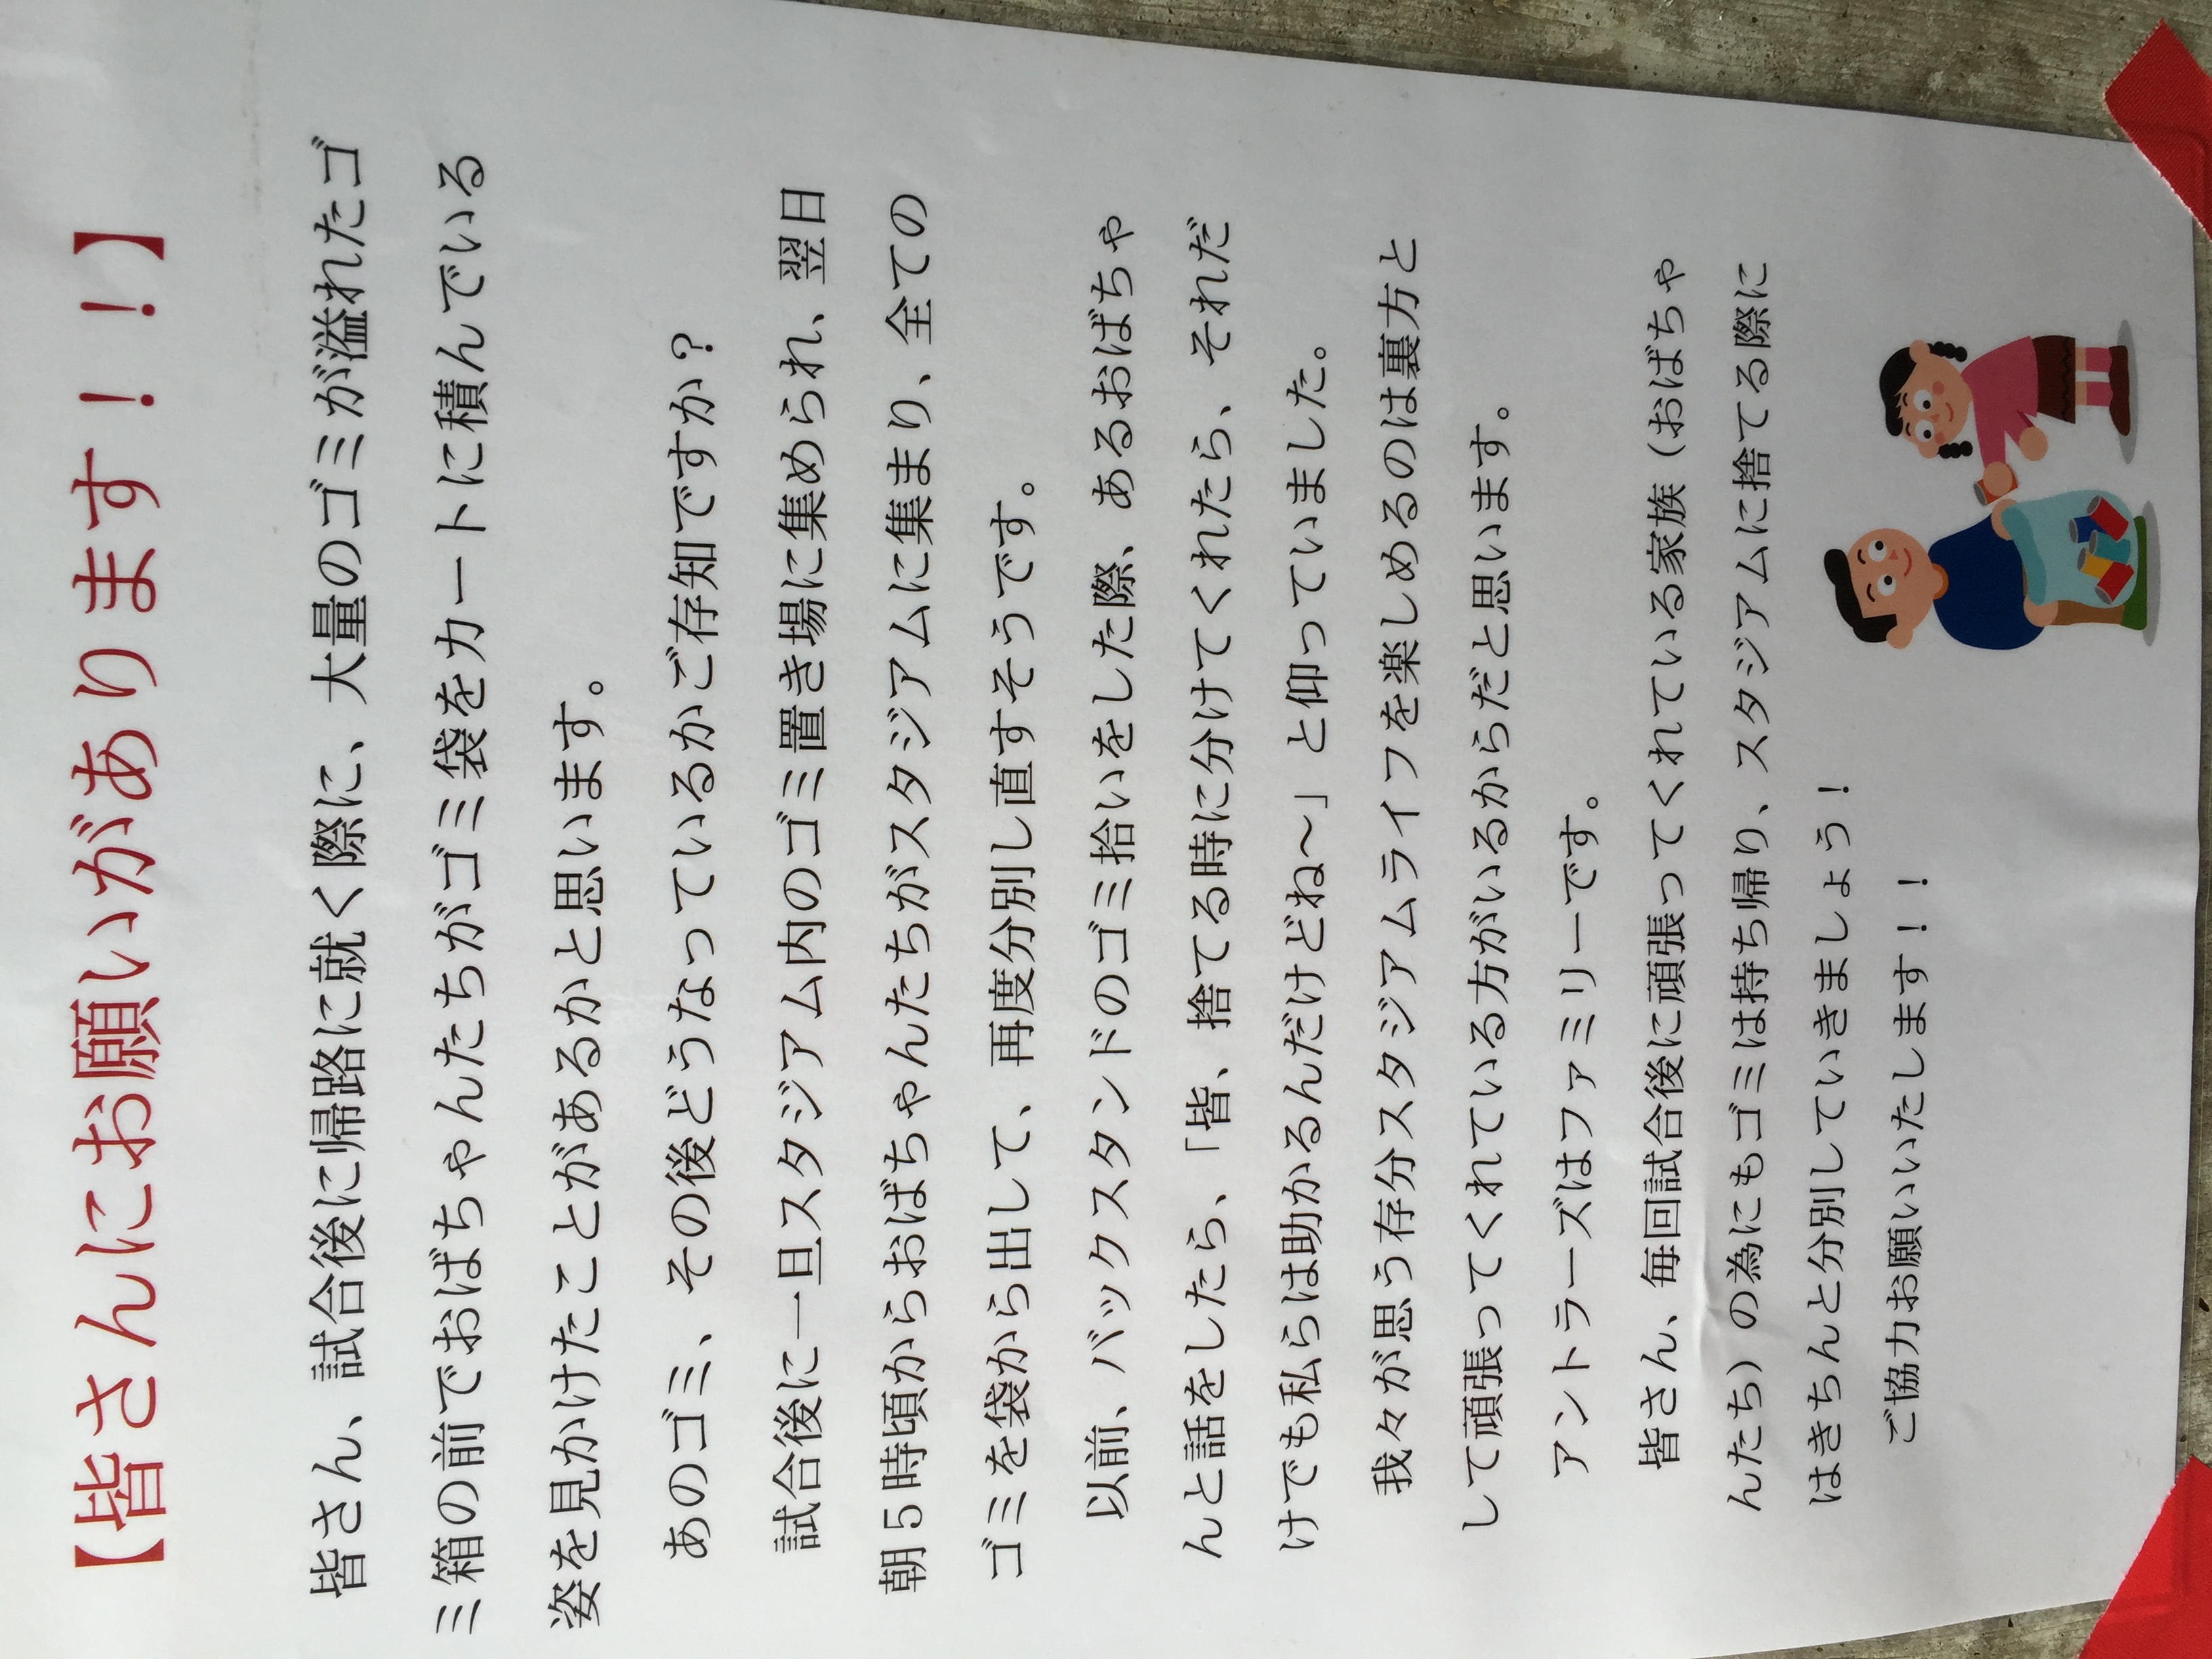 【皆さんにお願いがあります！！！】
皆さん、試合後に帰路に就く際に、大量のゴミが溢れたゴ
ミ箱の前でおばちゃんたちがゴミ袋をカートに積んでいる
姿を見かけたことがあるかと思います。
あのゴミ、その後どうなっているかご存知ですか？
試合後に一旦スタジアム内のゴミ置き場に集められ、翌日
朝５時頃からおばちゃんたちがスタジアムに集まり、全ての
ゴミを袋から出して、再度分別し直すそうです。
以前、バックスタンドのゴミ拾いをした際、あるおばちゃ
んと話をしたら、「皆、捨てる時に分けてくれたら、それだ
けでも私らは助かるんだけどね～」と仰っていました。
我々が思う存分スタジアムライフを楽しめるのは裏方と
して頑張ってくれている方がいるからだと思います。
アントラーズはファミリーです。
皆さん、毎回試合後に頑張ってくれている家族（おばちゃ
んたち）の為にもゴミは持ち帰り、スタジアムに捨てる際に
はきちんと分別していきましょう！
ご協力お願いいたします！！